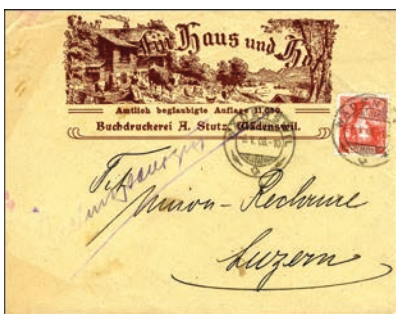 Für Haus und Hof
Amtlich beglaubigte Auflage 11 000
Buchdruckerei A. Stutz, Wädenswil.
Tit.
Union-Reclame
Luzern